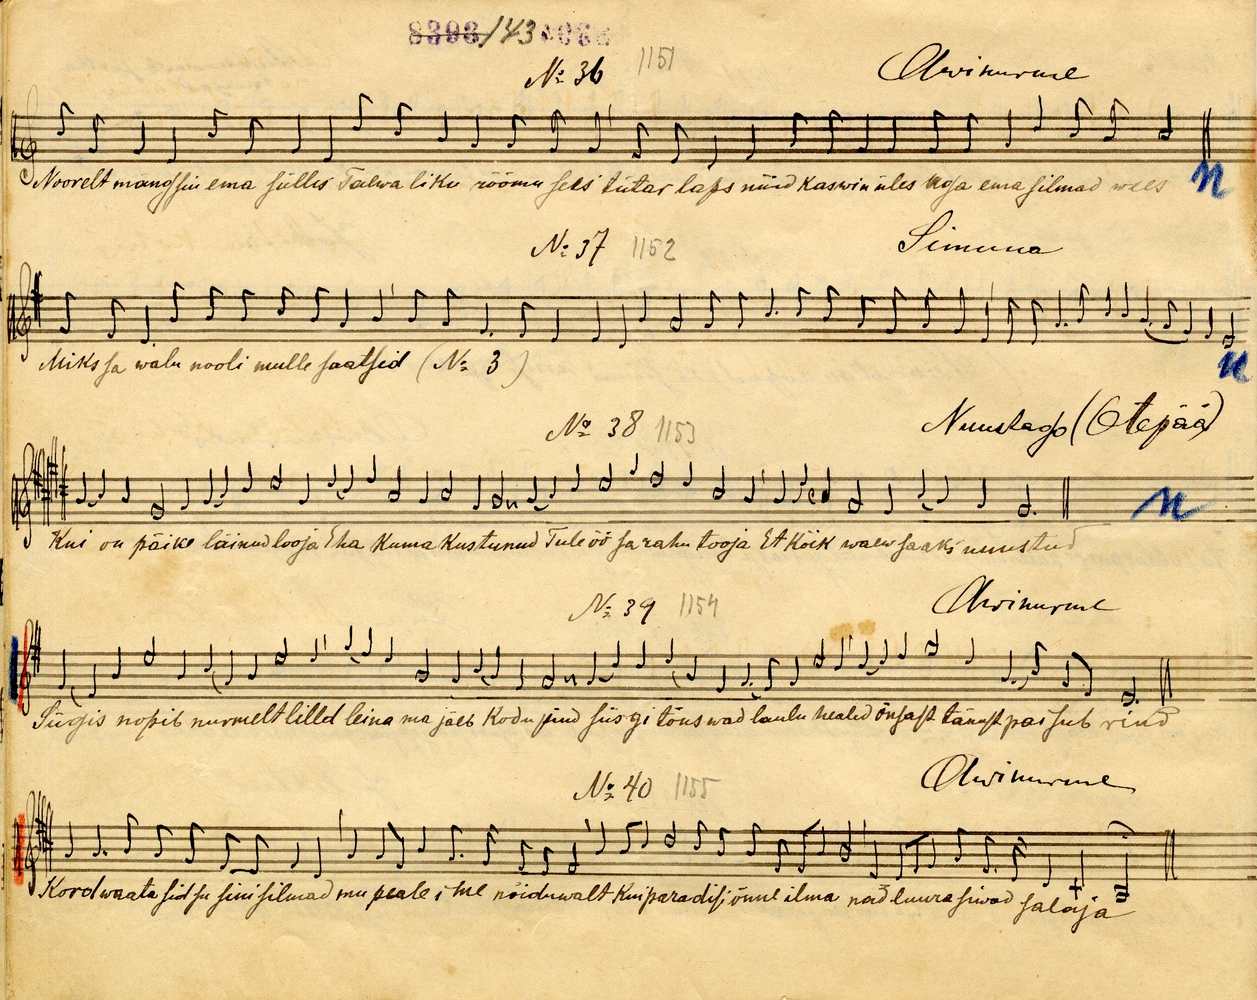 8398/143
№ 36 1151 Awinurme
Noorelt mangsin ema süllis Taewa liku röömu sees tütar laps nüid kaswin üles ema silmad wees
n
№ 37 1152 Simuna
Miks sa walu nooli mulle saatsid (№ 3)
n
№ 38 1153 Nuustago (Otepää)
Kui on päike läinud looja Eha Kuma Kustunud Tule öö sa rahu tooja Et Kõik waew saaks unustud
n
№ 39 1154 Awinurme
Sürgis nopib nurmelt lilled leina ma jäeb Kodu pind süsgi tõuswad laulu healed õnsast tänust paisub rind
№ 40 1155 Awinurme
Kord waatasid su sinisilmad mu peale ime nõiduwalt Kui paradisi õnne ilma nad luurasiwad salaja